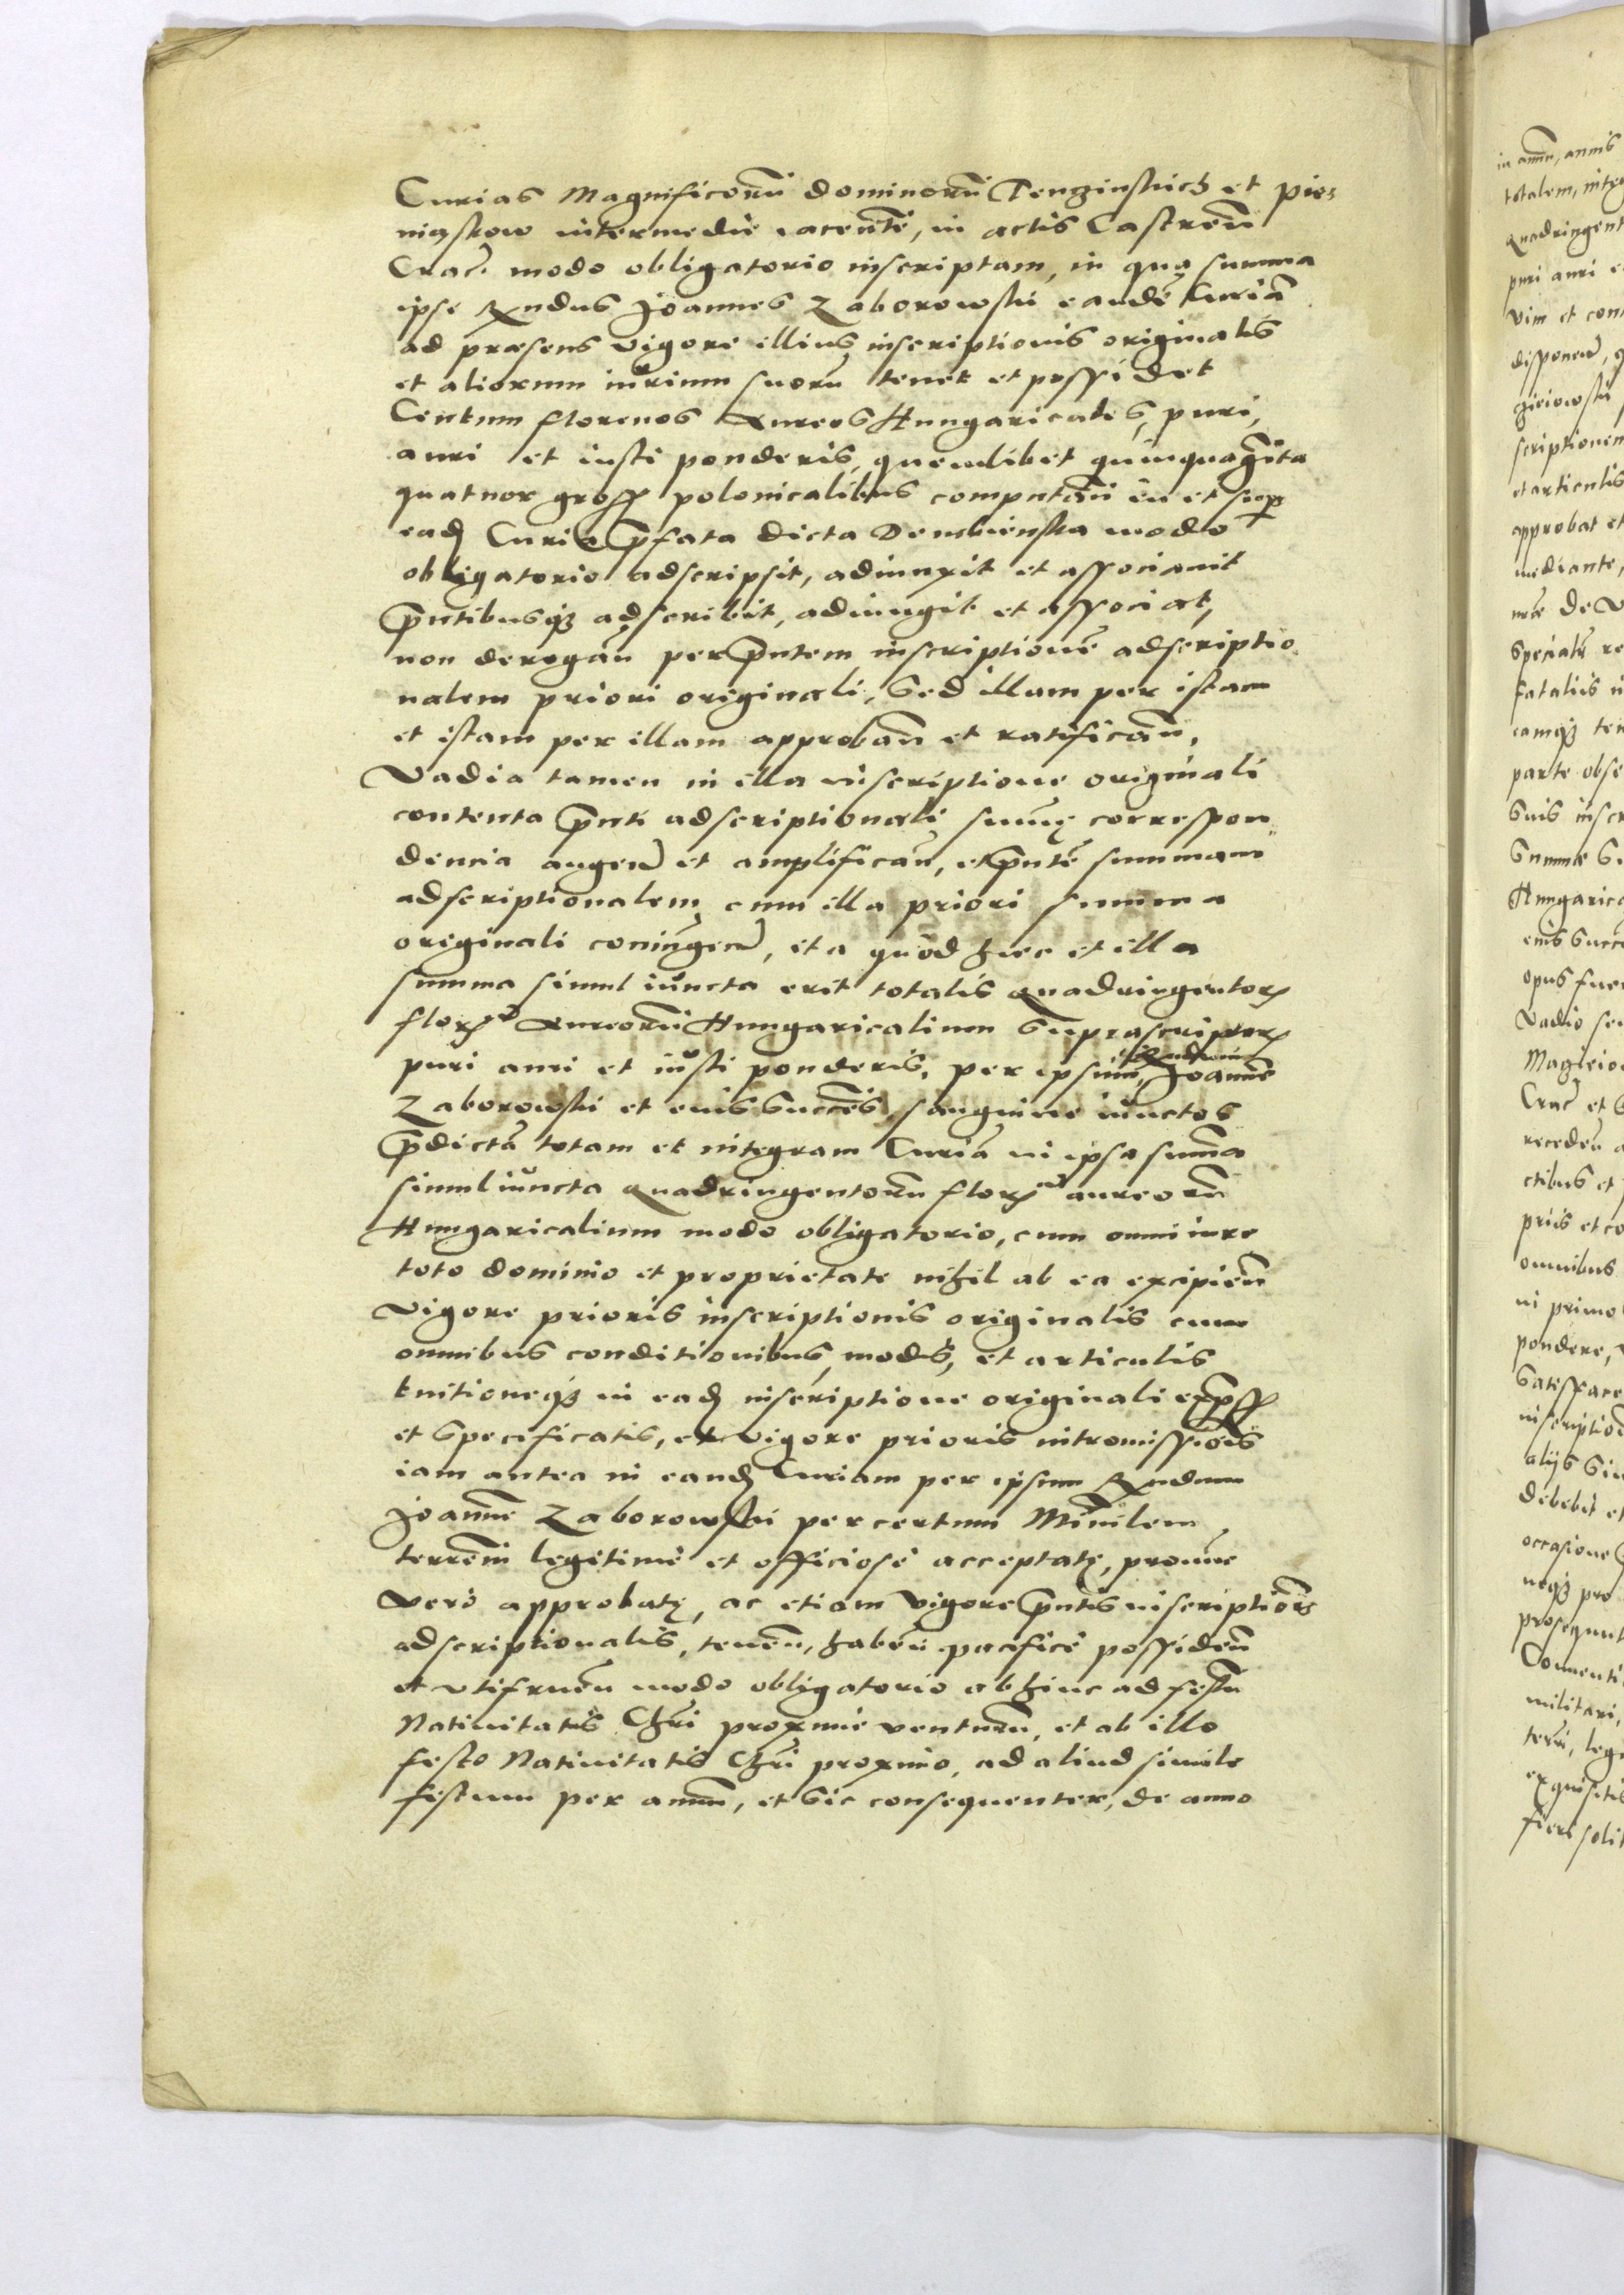 Curias Magnificorū dominorū Tenzinskich et pie⸗
niąskow intermedie iacentē, in actis Castreñ
Crac̄. modo obligatorio inscriptam, in qua summa
ipse Rn̄dus Joannes Zaborowski eandē Curiā
ad præsens vigore illius inscriptionis originalis
et aliorum iurium suorū tenet et possidet
Centum florenos Aureos Hungaricales, puri,
auri et iusti ponderis, quemlibet quinquaḡita
quatuor gross polonicalibus computañ in et sup̱
ead Curia p̄fata dicta Dembienska modo
obligatorio adscripsit, adiunxit et associauit
p̄ntibusq3 adscribit, adiungit et associat,
non derogañ per p̄ntem inscriptionē adscriptio
nalem priori originali, Sed illam per istam
et istam per illam approbañ et ratificañ,
Vadia tamen in illa inscriptione originali
contenta p̄nti adscriptionali sum̄ę correspon⸗
dencia augeñ et amplificañ, et p̄ntē summam
adscriptionalem cum illa priori summa
originali coniungeñ, ita quòd hæc et illa
summa simul iuncta erit totalis Quadringentor
flor Aureorū Hungaricalium Suprascriptor
puri auri et iusti ponderis, per ipsum, Rn̄dum Joannē
Zaborowski et eius Succēs sanguine iunctos
p̄dictā totam et integram Curiā in ipsa sum̄a
simul iuncta Quadringentorū flor aureorū
Hungaricalium modo obligatorio, cum omni iure
toto dominio et proprietate nihil ab ea excipieñ
vigore prioris inscriptionis originalis cum
omnibus conditionibus, modis, et articulis
euitioneq3 in ead inscriptione originali exp̄ss
et Specificatis, et vigore prioris intromissiōis
iam antea in eand Curiam per ipsum Rn̄dum
Joannē Zaborowski per certum Min̄ilem
terreñ legitimè et officiosè acceptatę, prout
verò approbatę, ac etiam vigore p̄ntis inscriptiōis
adscriptionalis, teneñ, habeñ pacificè possideñ
et vtifrueñ modo obligatorio abhinc ad festū
Natiuitatis Chr̄i proxime venturū, et ab illo
festo Natiuitatis Chr̄i proximo, ad aliud simile
festum per annū, et Sic consequenter, de anno
in annū, annis
totalem, integ
Quadringent
puri auri e
vim et con
disponeñ, q
scriptionem
et articulis
approbat et
mediante,
Specialr re
eamq3 ten
parte obse
Suis inscr
Summæ
Hungarica
eius Succ
opus fuer
Vadio seu
Crac̄ et S
recedeñ a
ctibus et
priis et co
omnibus
in primo
pondere,
Satisface
inscription
alijs Si
debebit et
occasione
neq3 pro
prosequut
Conuenti
militari,
terrñ, leg
exquisitis
fieri solit